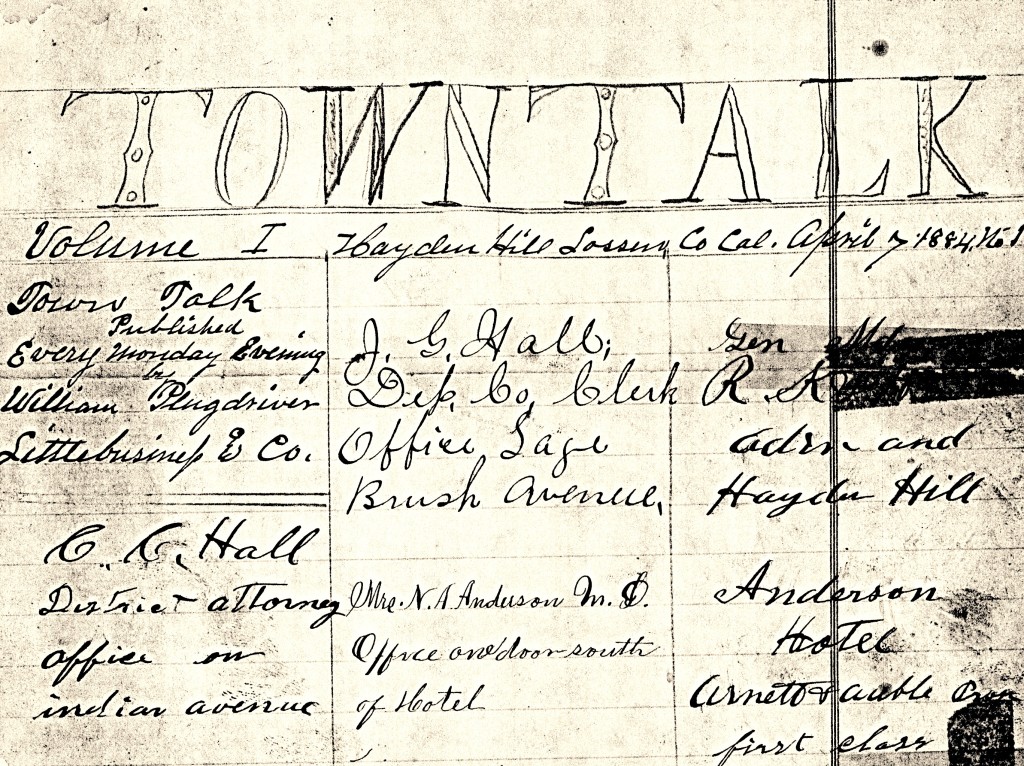 TOWN TALK
Volume I Hayden Hill Lassen Co Cal. April 7 1884, No 1
Town Talk
Published
Every Monday Evening
by
William Plugdriver
Littlebusiness & Co.
C. C. Hall
District attorney
office on
indian avenue
J. G. Hall,
Dep. Co. Clerk
Office, Sage
Brush Avenue,
Mrs. N. A. Anderson M. D.
Office one door south
of Hotel
Gen
R.
adin and
Hayden Hill
Anderson
Hotel
Arnett & auble
first class